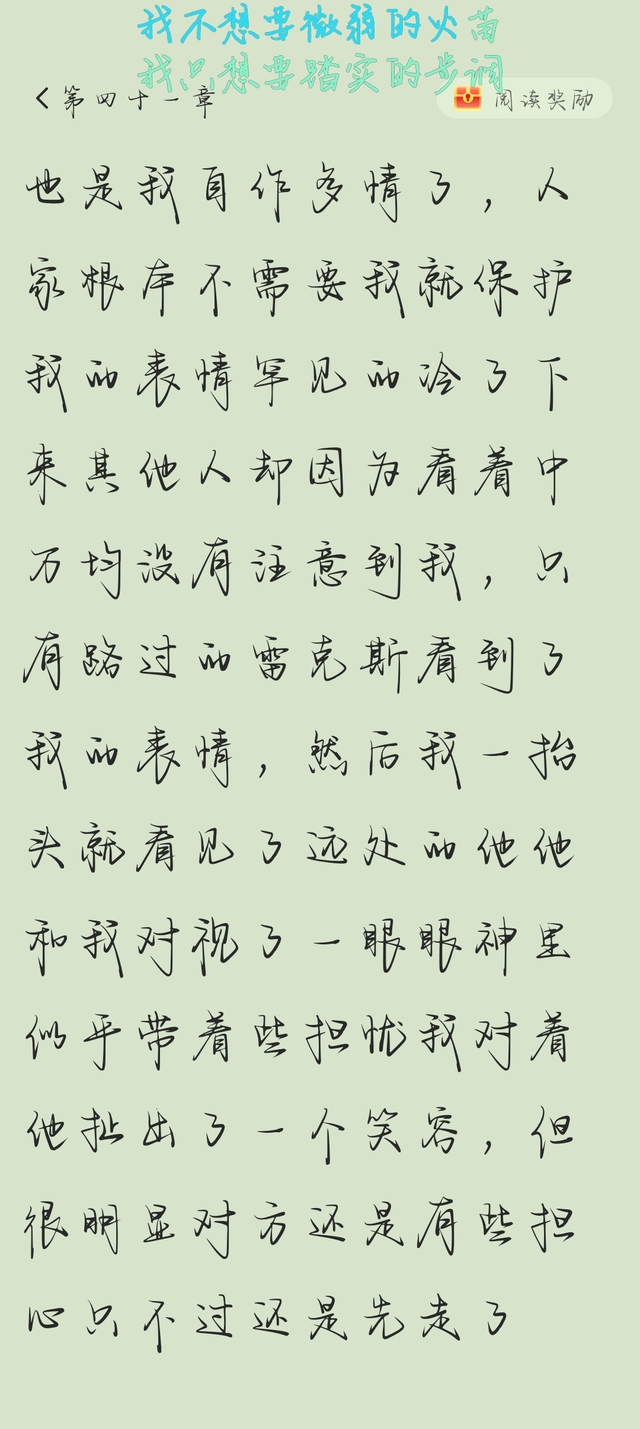 我不想要微弱的火苗
我只想要踏实的步调
第四十一章
阅读奖励
也是我自作多情了，人
家根本不需要我就保护
我的表情罕见的冷了下
来其他人却因为看着中
万均没有注意到我，只
有路过的雷克斯看到了
我的表情，然后我一抬
头就看见了远处的他他
和我对视了一眼眼神里
似乎带着些担忧我对着
他扯出了一个笑容，但
很明显对方还是有些担
心只不过还是先走了